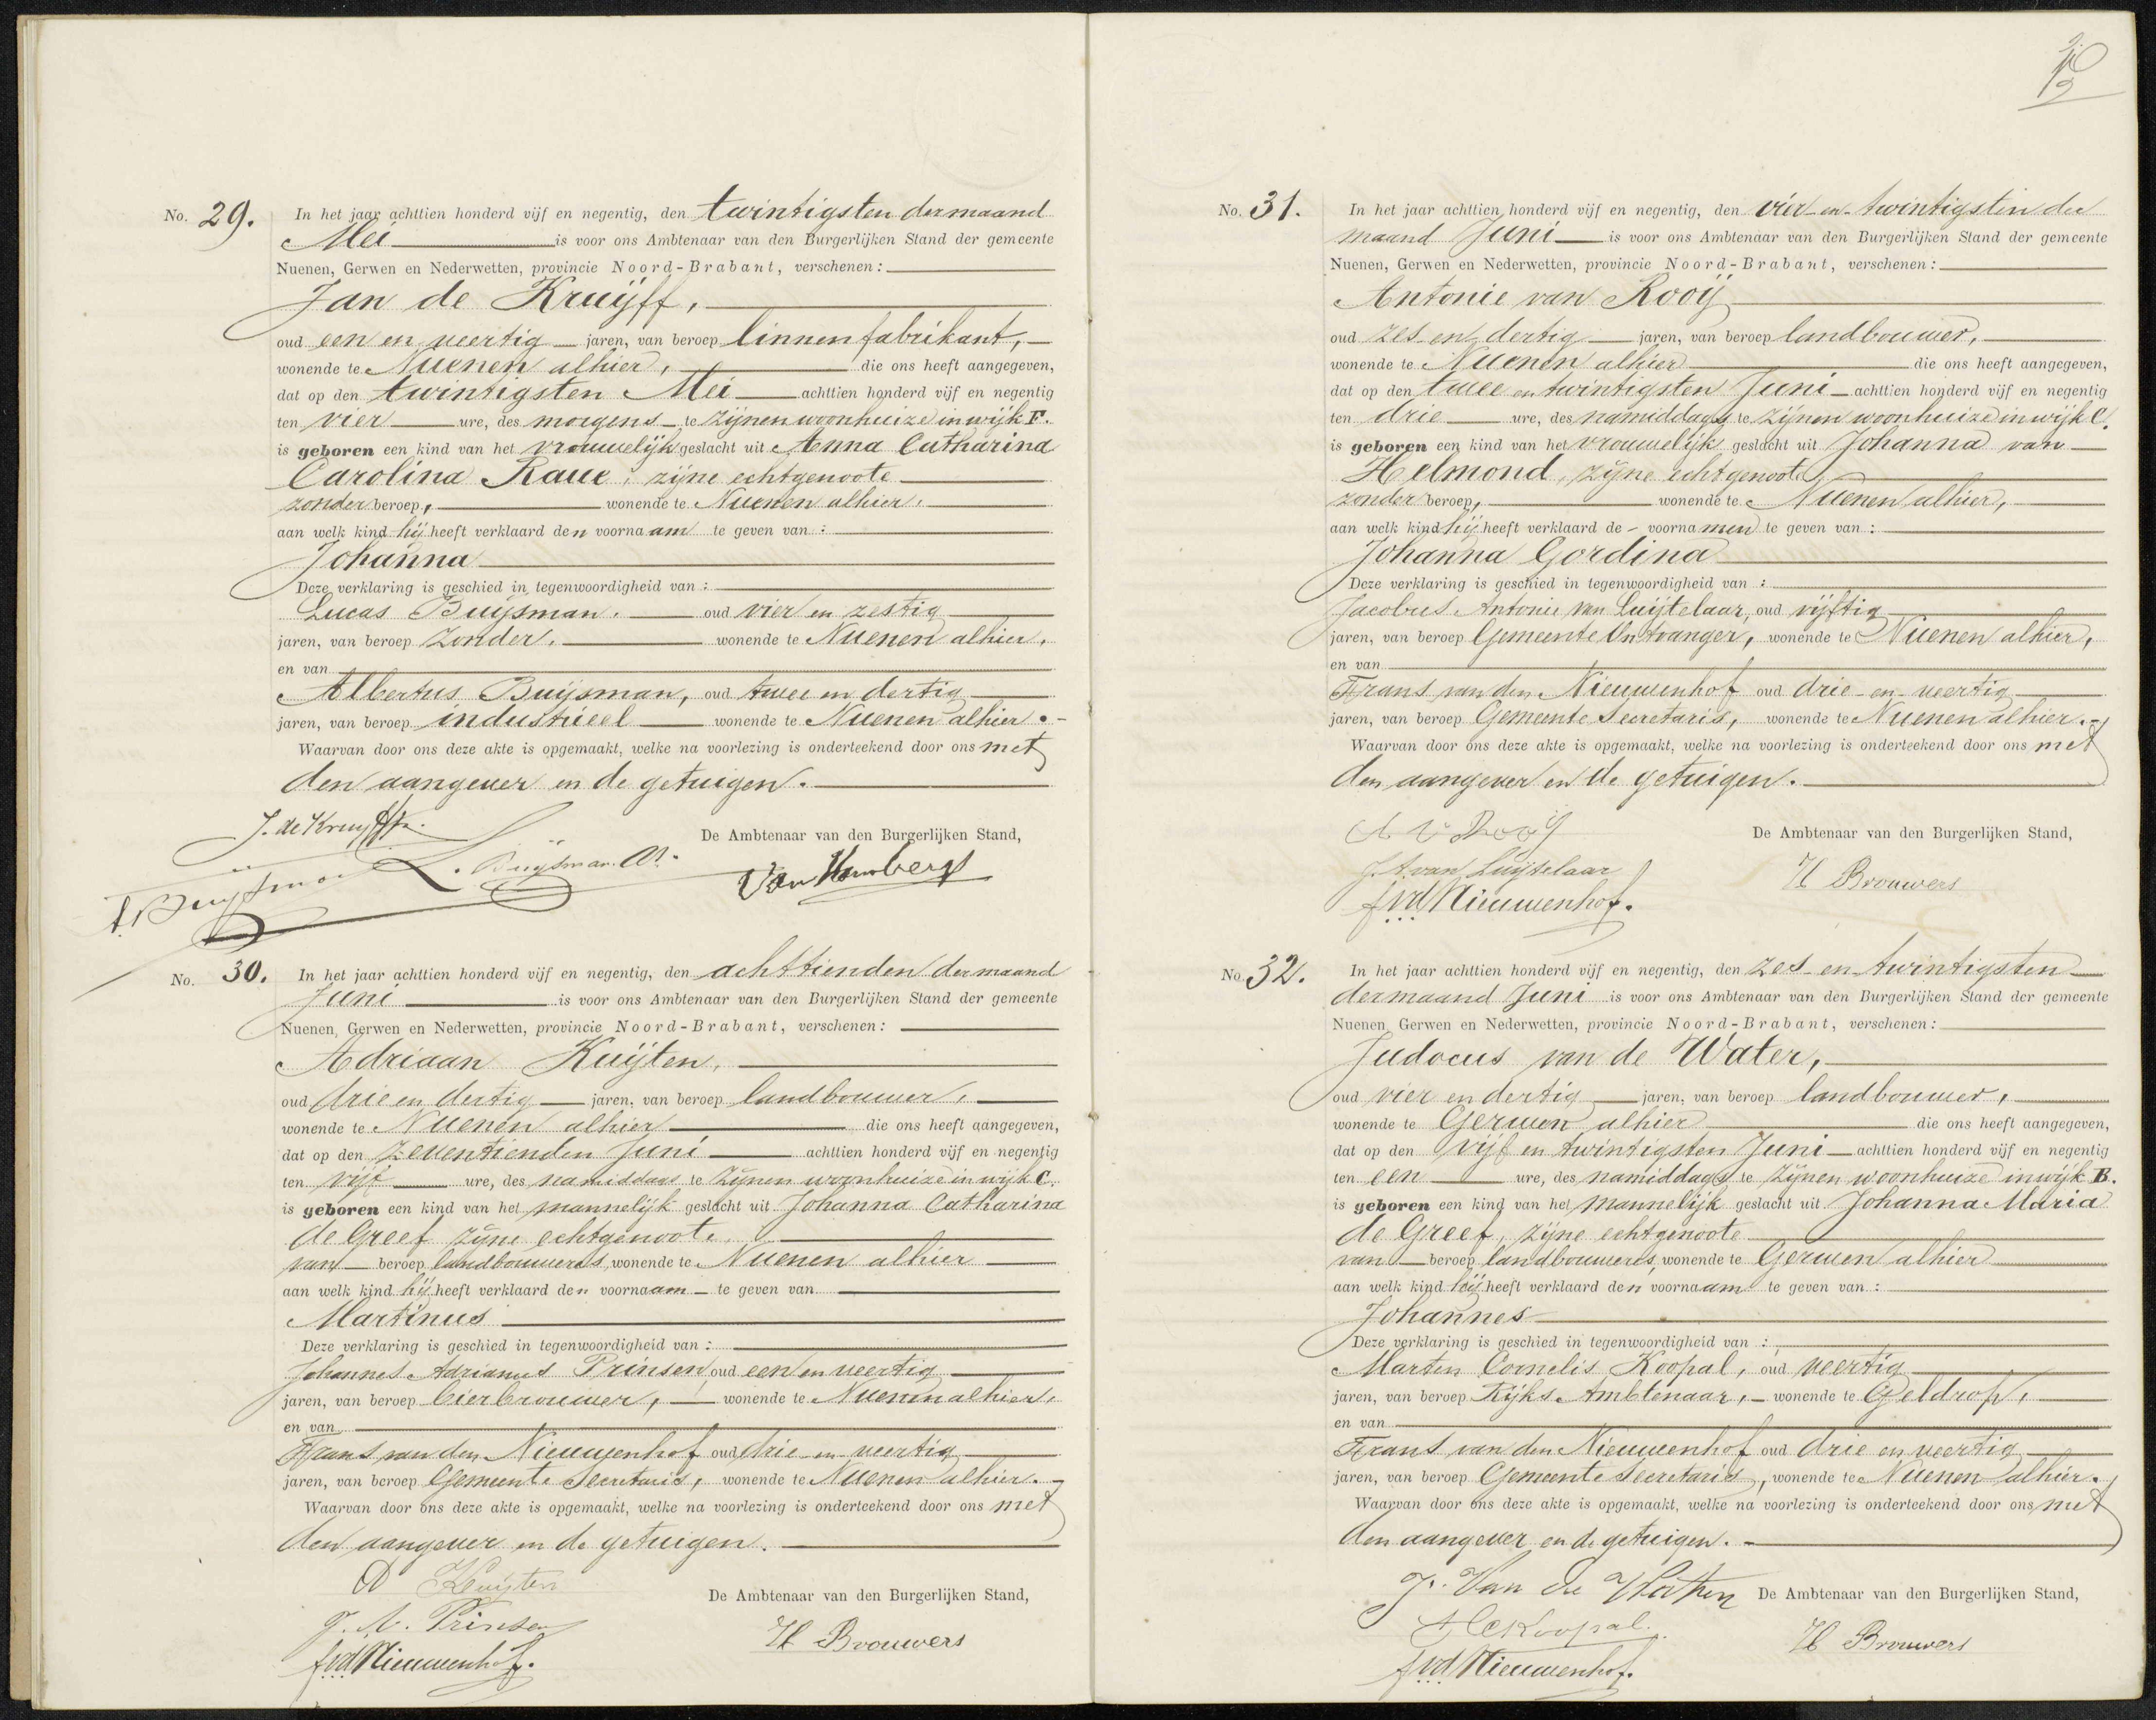 No. 29. In het jaar achttien honderd vijf en negentig, den twintigsten der maand
Mei is voor ons Ambtenaar van den Burgerlijken Stand der gemeente
Nuenen, Gerwen en Nederwetten, provincie Noord-Brabant, verschenen:
Jan de Kruijff,
oud een en veertig jaren, van beroep linnenfabrikant,
wonende te Nuenen alhier, die ons heeft aangegeven,
dat op den twintigsten Mei achttien honderd vijf en negentig
ten vier ure, des morgens te zijnen woonhuize in wijk F.
is geboren een kind van het vrouwelijk geslacht uit Anna Catharina
Carolina Raue, zijne echtgenoote
zonder beroep, wonende te Nuenen alhier,
aan welk kind hij heeft verklaard den voornaam te geven van:
Johanna
Deze verklaring is geschied in tegenwoordigheid van:
Lucas Buijsman, oud vier en zestig
jaren, van beroep zonder, wonende te Nuenen alhier,
en van
Albertus Buijsman, oud twee en dertig
jaren, van beroep industriëel wonende te Nuenen alhier.
Waarvan door ons deze akte is opgemaakt, welke na voorlezing is onderteekend door ons met
den aangever en de getuigen.
J. de Kruyff
De Ambtenaar van den Burgerlijken Stand,
L. Buijsman
Buijsman
No. 30. In het jaar achttien honderd vijf en negentig, den achttienden der maand
Juni is voor ons Ambtenaar van den Burgerlijken Stand der gemeente
Nuenen, Gerwen en Nederwetten, provincie Noord-Brabant, verschenen:
Adriaan Kuijten,
oud drie en dertig jaren, van beroep landbouwer,
wonende te Nuenen alhier die ons heeft aangegeven,
dat op den zeventienden Juni achttien honderd vijf en negentig
ten vijf ure, des namiddags te zijnen woonhuize in wijk C.
is geboren een kind van het mannelijk geslacht uit Johanna Catharina
de Greef zijne echtgenoote,
van beroep landbouweres, wonende te Nuenen alhier
aan welk kind hij heeft verklaard den voornaam te geven van
Martinus
Deze verklaring is geschied in tegenwoordigheid van:
Johannes Adrianus Prinsen, oud een en veertig
jaren, van beroep bierbrouwer, wonende te Nuenen alhier,
en van
Frans van den Nieuwenhof oud drie en veertig
jaren, van beroep Gemeente Secretaris, wonende te Nuenen alhier.
Waarvan door ons deze akte is opgemaakt, welke na voorlezing is onderteekend door ons met
den aangever en de getuigen.
A Kuijten
De Ambtenaar van den Burgerlijken Stand,
J. A. Prinsen
H Brouwers
fvd Nieuwenhof.
No. 31. In het jaar achttien honderd vijf en negentig, den vier en twintigsten der
maand Juni is voor ons Ambtenaar van den Burgerlijken Stand der gemeente
Nuenen, Gerwen en Nederwetten, provincie Noord-Brabant, verschenen:
Antonie van Rooij
oud zes en dertig jaren, van beroep landbouwer,
wonende te Nuenen alhier die ons heeft aangegeven,
dat op den twee en twintigsten Juni achttien honderd vijf en negentig
ten drie ure, des namiddags te zijnen woonhuize in wijk C.
is geboren een kind van het vrouwelijk geslacht uit Johanna van
Helmond, zijne echtgenoote
zonder beroep, wonende te Nuenen alhier,
aan welk kind hij heeft verklaard de voornamen te geven van:
Johanna Gordina
Deze verklaring is geschied in tegenwoordigheid van:
Jacobus Antonie van Luijtelaar, oud vijftig
jaren, van beroep Gemeente Ontvanger, wonende te Nuenen alhier,
en van
Frans van den Nieuwenhof oud drie en veertig
jaren, van beroep Gemeente Secretaris, wonende te Nuenen alhier.
Waarvan door ons deze akte is opgemaakt, welke na voorlezing is onderteekend door ons met
den aangever en de getuigen.
A v Rooy
De Ambtenaar van den Burgerlijken Stand,
J. A. van Luijtelaar
H Brouwers
fvd Nieuwenhof.
No. 32. In het jaar achttien honderd vijf en negentig, den zes en twintigsten
der maand Juni is voor ons Ambtenaar van den Burgerlijken Stand der gemeente
Nuenen, Gerwen en Nederwetten, provincie Noord-Brabant, verschenen:
Judocus van de Water,
oud vier en dertig jaren, van beroep landbouwer,
wonende te Gerwen alhier die ons heeft aangegeven,
dat op den vijf en twintigsten Juni achttien honderd vijf en negentig
ten een ure, des namiddags te zijnen woonhuize in wijk B.
is geboren een kind van het mannelijk geslacht uit Johanna Maria
de Greef, zijne echtgenoote
van beroep landbouweres, wonende te Gerwen alhier
aan welk kind hij heeft verklaard den voornaam te geven van:
Johannes
Deze verklaring is geschied in tegenwoordigheid van:
Marten Cornelis Koopal, oud veertig
jaren, van beroep Rijks Ambtenaar, wonende te Geldrop,
en van
Frans van den Nieuwenhof oud drie en veertig
jaren, van beroep Gemeente Secretaris, wonende te Nuenen alhier.
Waarvan door ons deze akte is opgemaakt, welke na voorlezing is onderteekend door ons met
den aangever en de getuigen.
J. Van de
De Ambtenaar van den Burgerlijken Stand,
Koopal.
H Brouwers
fvd Nieuwenhof.